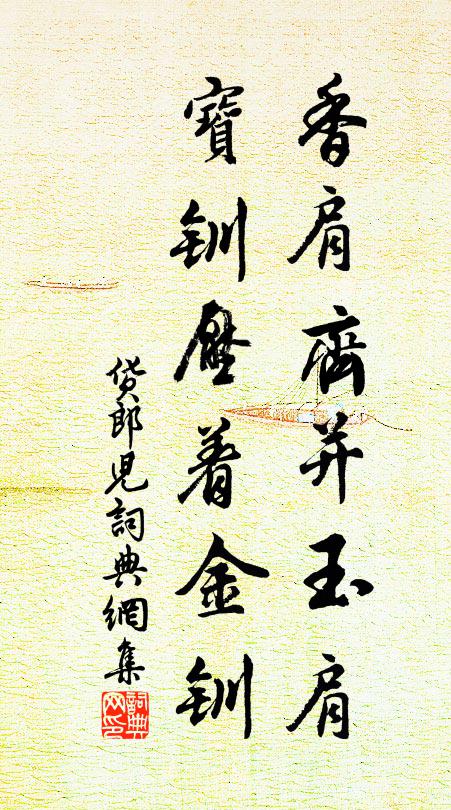 香肩齊并玉肩
寶釧壓着金釧
貨郎児詞典網集
詞典
网印